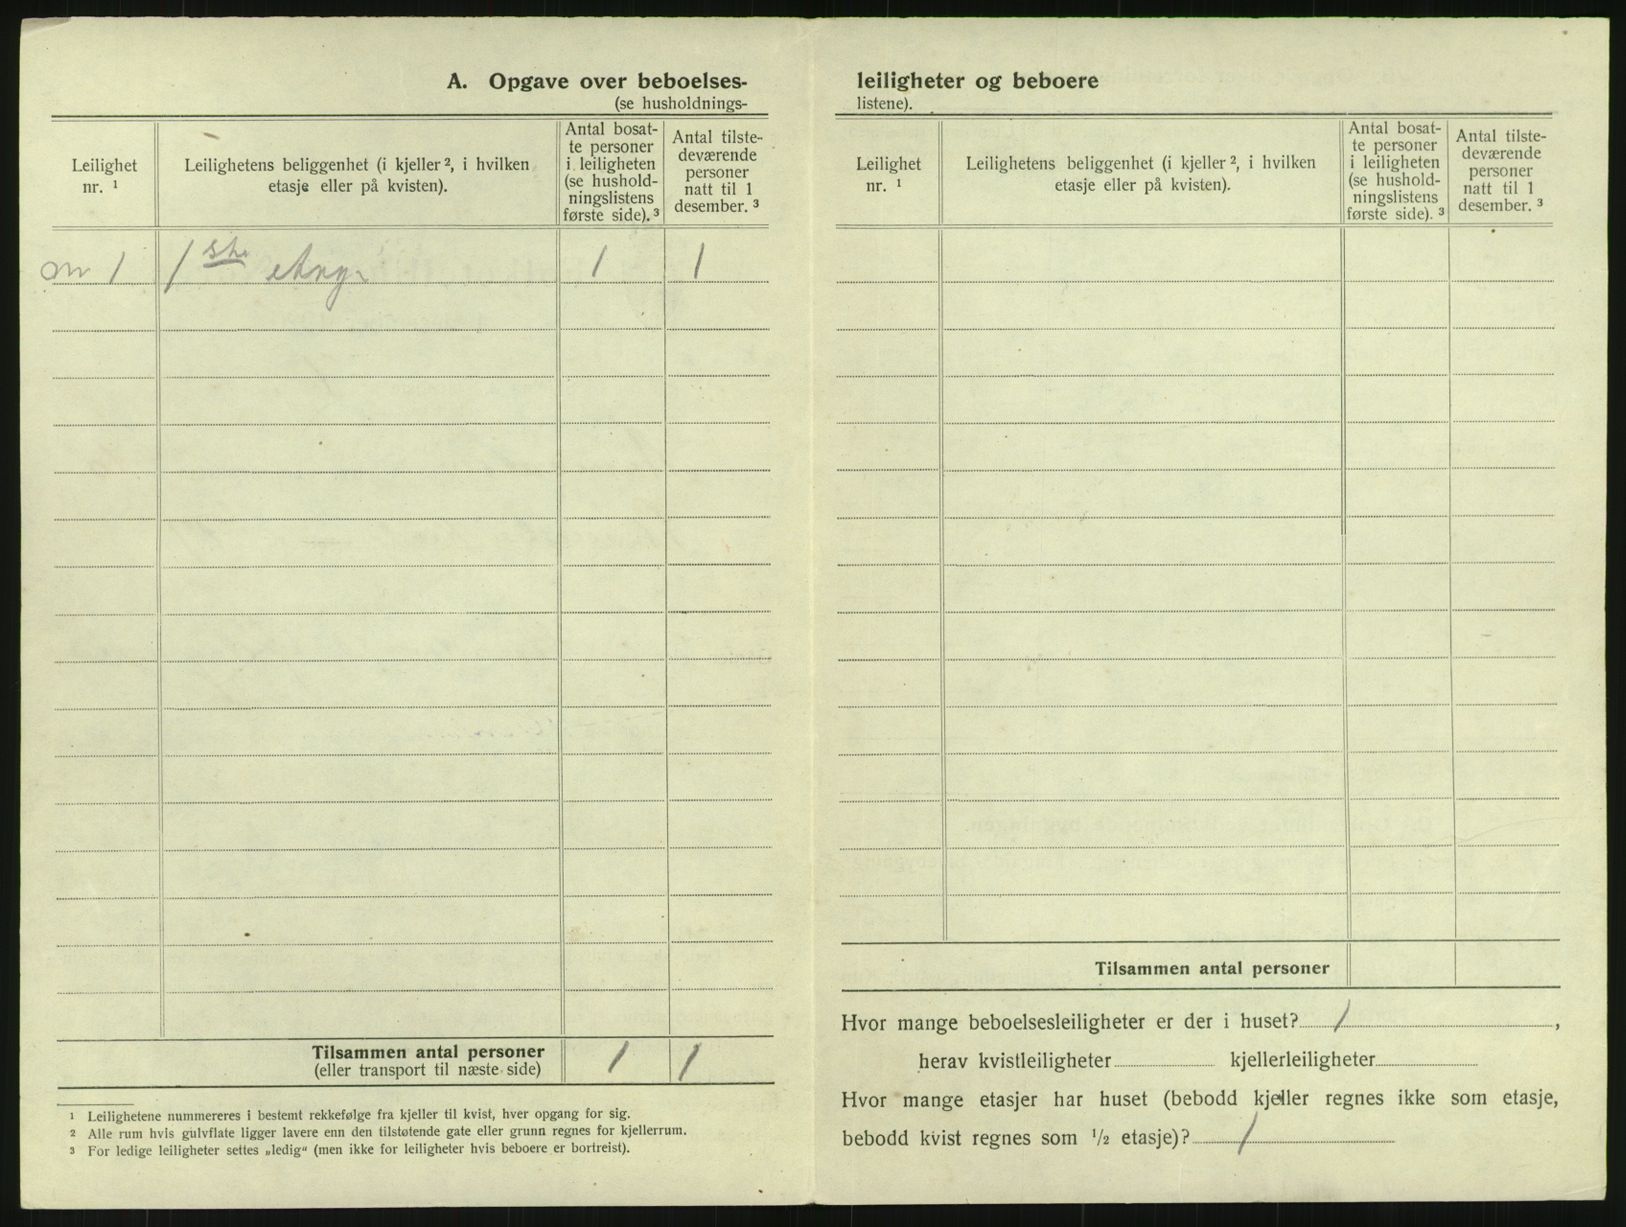 A. Opgave over beboelses-
(se husholdnings-
Leilighet
nr. ¹
Leilighetens beliggenhet (i kjeller ², i hvilken
etasje eller på kvisten).
Antal bosat-
te personer
i leiligheten
(se hushold-
ningslistens
første side). ³
Antal tilste-
deværende
personer
natt til 1
desember. ³
1 1ste 1 1
Tilsammen antal personer 1 1
(eller transport til næste side)
¹ Leilighetene nummereres i bestemt rekkefølge fra kjeller til kvist, hver opgang for sig.
² Alle rum hvis gulvflate ligger lavere enn den tilstøtende gate eller grunn regnes for kjellerrum.
³ For ledige leiligheter settes „ledig“ (men ikke for leiligheter hvis beboere er bortreist).
leiligheter og beboere
listene).
Leilighet
nr. ¹
Leilighetens beliggenhet (i kjeller ², i hvilken
etasje eller på kvisten).
Antal bosat-
te personer
i leiligheten
(se hushold-
ningslistens
første side). ³
Antal tilste-
deværende
personer
natt til 1
desember. ³
Tilsammen antal personer
Hvor mange beboelsesleiligheter er der i huset? 1,
herav kvistleiligheter kjellerleiligheter
Hvor mange etasjer har huset (bebodd kjeller regnes ikke som etasje,
bebodd kvist regnes som ½ etasje)? 1